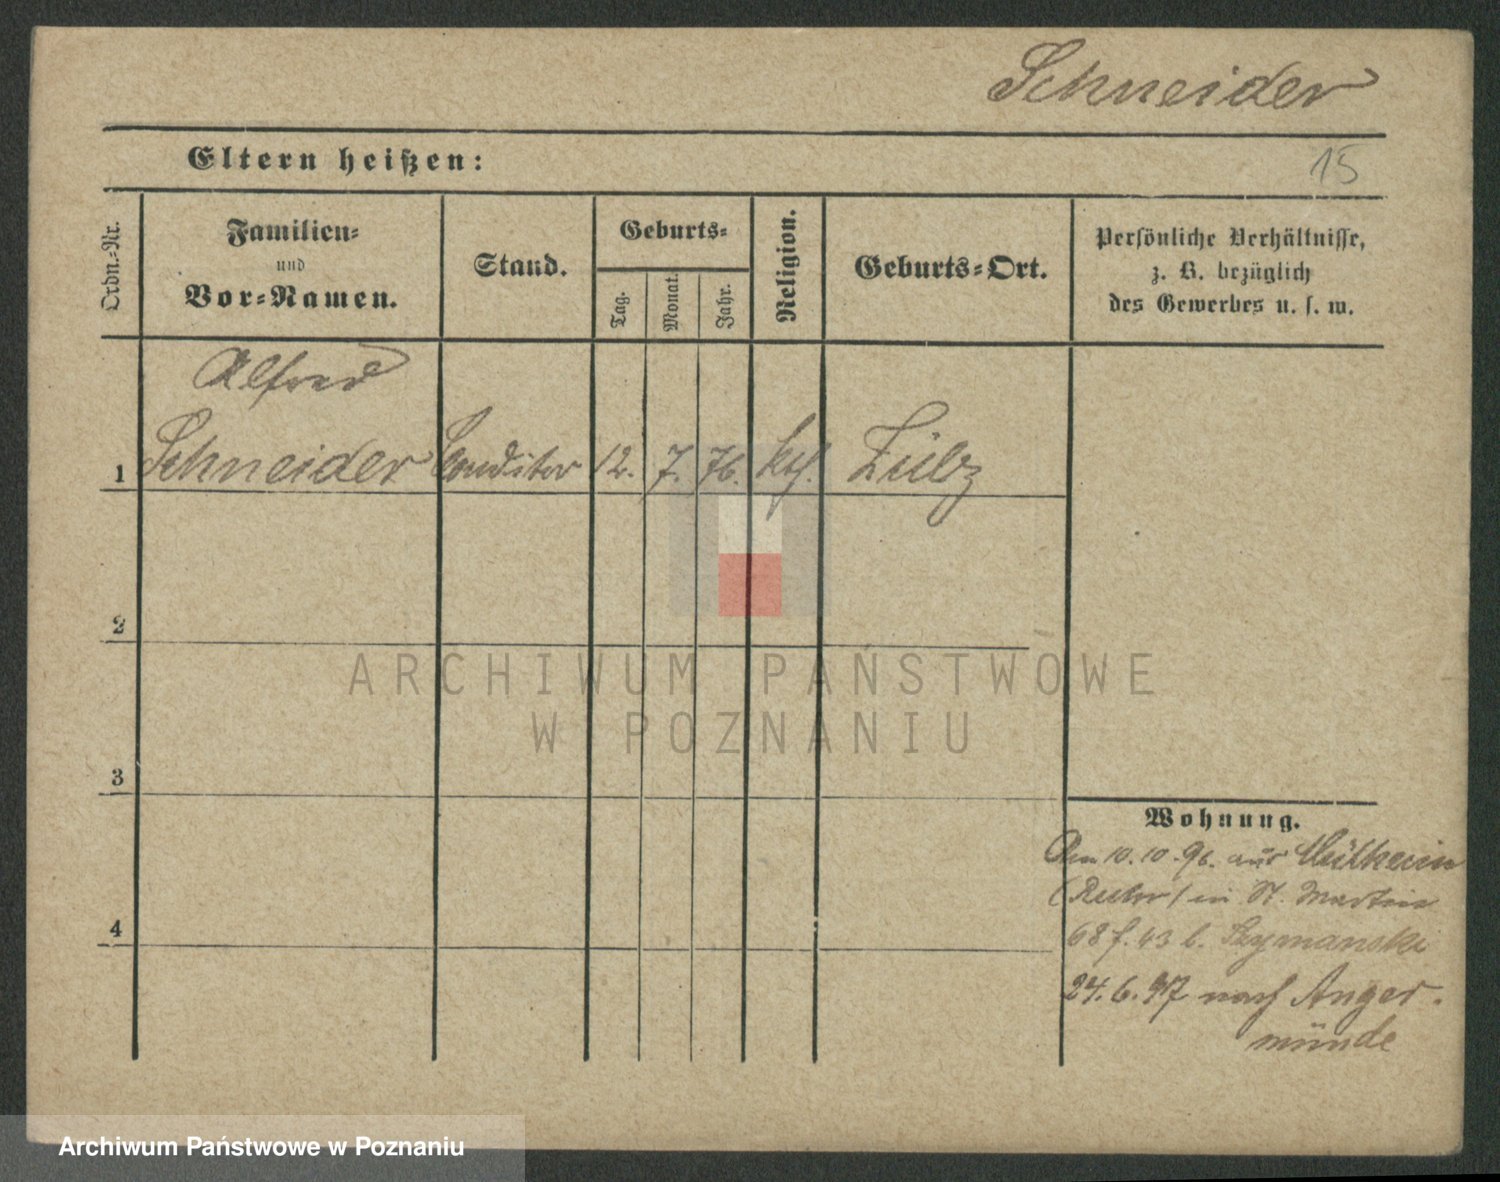 Schneider
Eltern heißen:
15
Ordn.-Nr.
Familien-
und
Vor-Namen.
Stand.
Geburts-
Tag.
Monat.
Jahr.
Religion.
Geburts-Ort.
Persönliche Verhältnisse,
z. B. bezüglich
des Gewerbes u. s. w.
Alfred
1 Schneider Conditor 12. 7. 76. Zülz
2
3
4
Wohnung.
Am 10.10.96. aus Mülheim
(Ruhr) in St. Martin
68 f. 43 b. Szymanski
24.6.97 nach Anger-
münde
ARCHIWUM PAŃSTWOWE
W POZNANIU
Archiwum Państwowe w Poznaniu